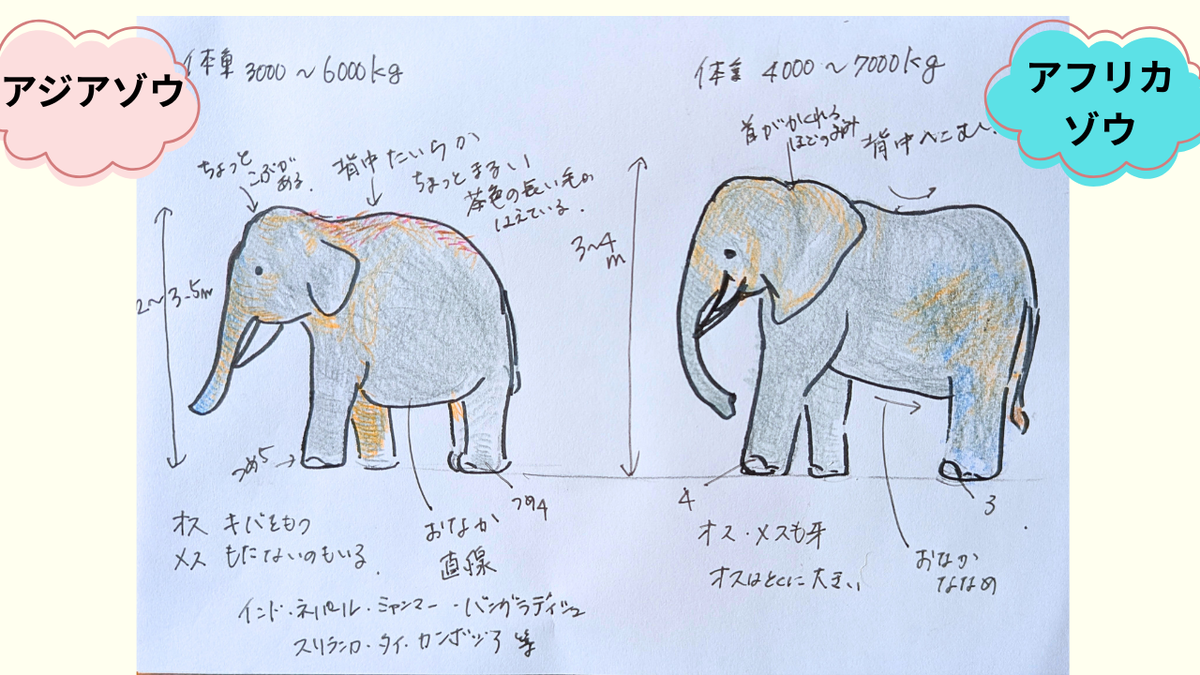 アジアゾウ
体重 3000〜6000kg
ちょっと
こぶが
ある.
背中たいらか
ちょっとまるい
茶色の長い毛が
はえている.
2〜3.5m
つめ5
つめ4
おなか
直線
オス キバをもつ
メス もたないのもいる.
インド・ネパール・ミャンマー・バングラディシュ
スリランカ・タイ・カンボジア 等
アフリカ
ゾウ
体重 4000〜7000kg
首がかくれる
ほどのみみ
背中へこむ.
3〜4
m
4
3
オス・メスも牙
オスはとくに大きい
おなか
ななめ